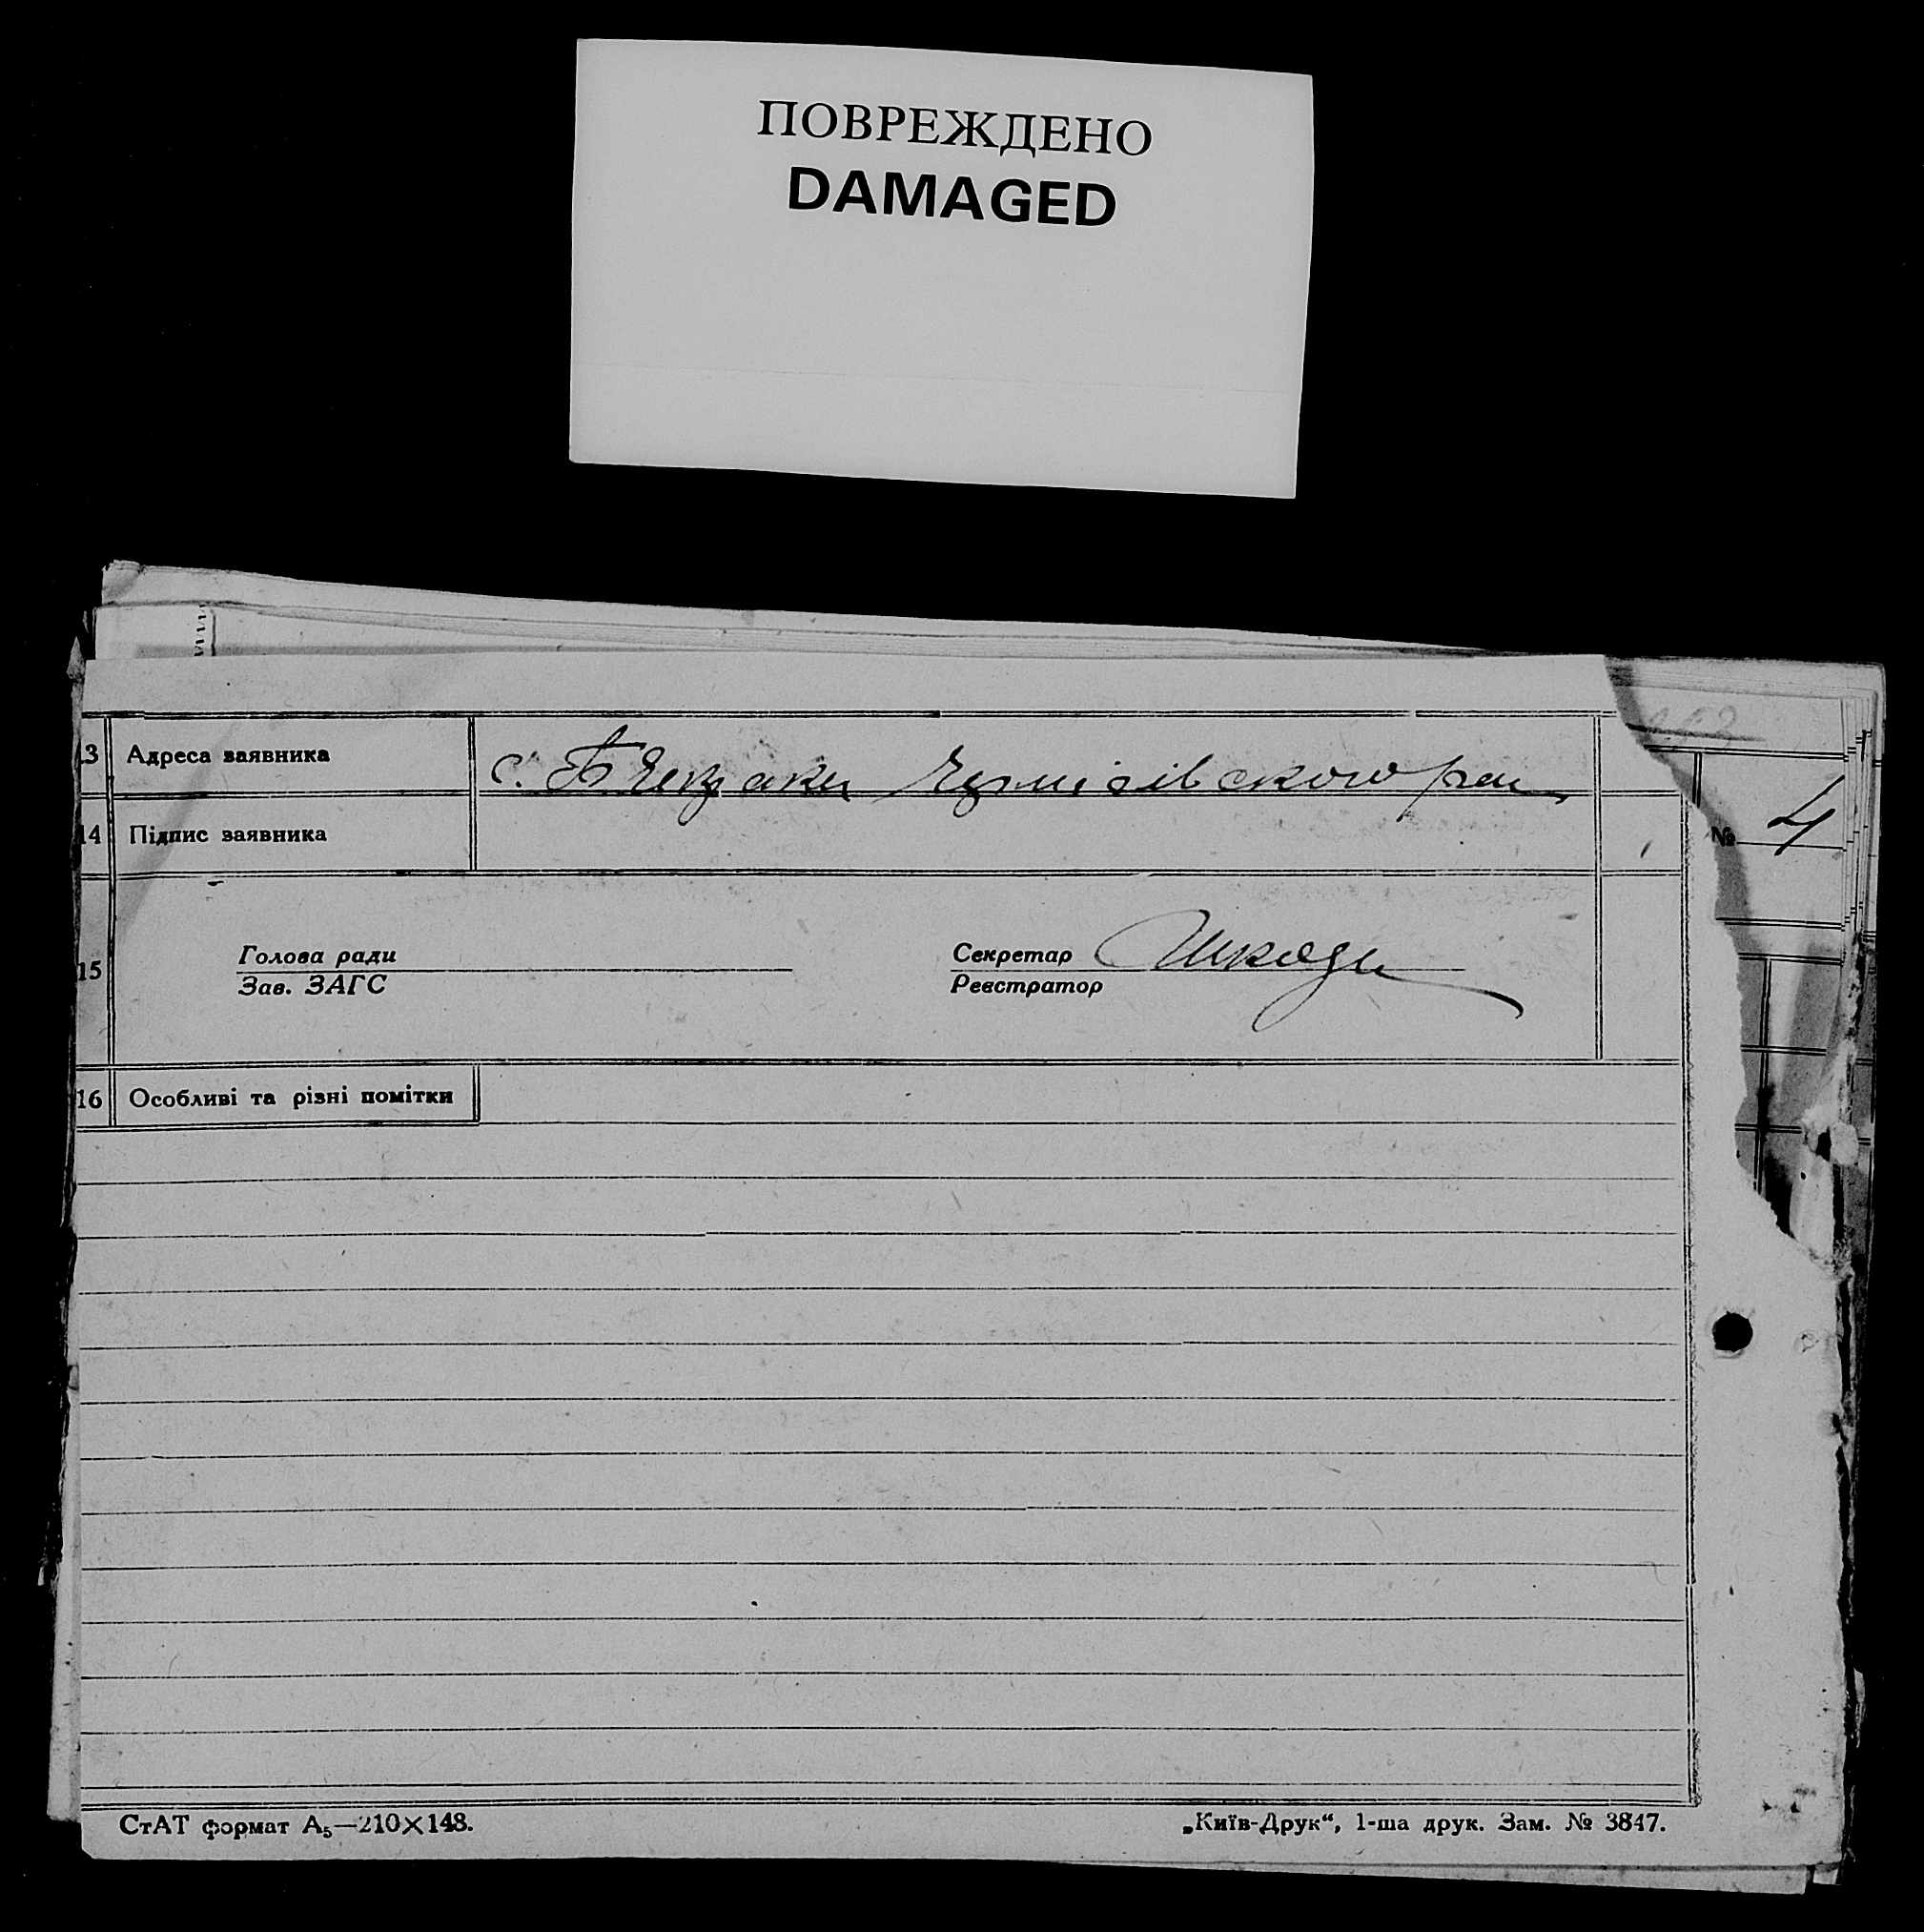 ПОВРЕЖДЕНО
DAMAGED
13 Адреса заявника с. Чернігівського рай
14 Підпис заявника
№ 4
15
Голова ради Секретар
Зав. ЗАГС Реєстратор
16 Особливі та різні помітки
СтАТ формат А₅—210×148. „Київ-Друк“, 1-ша друк. Зам. № 3847.